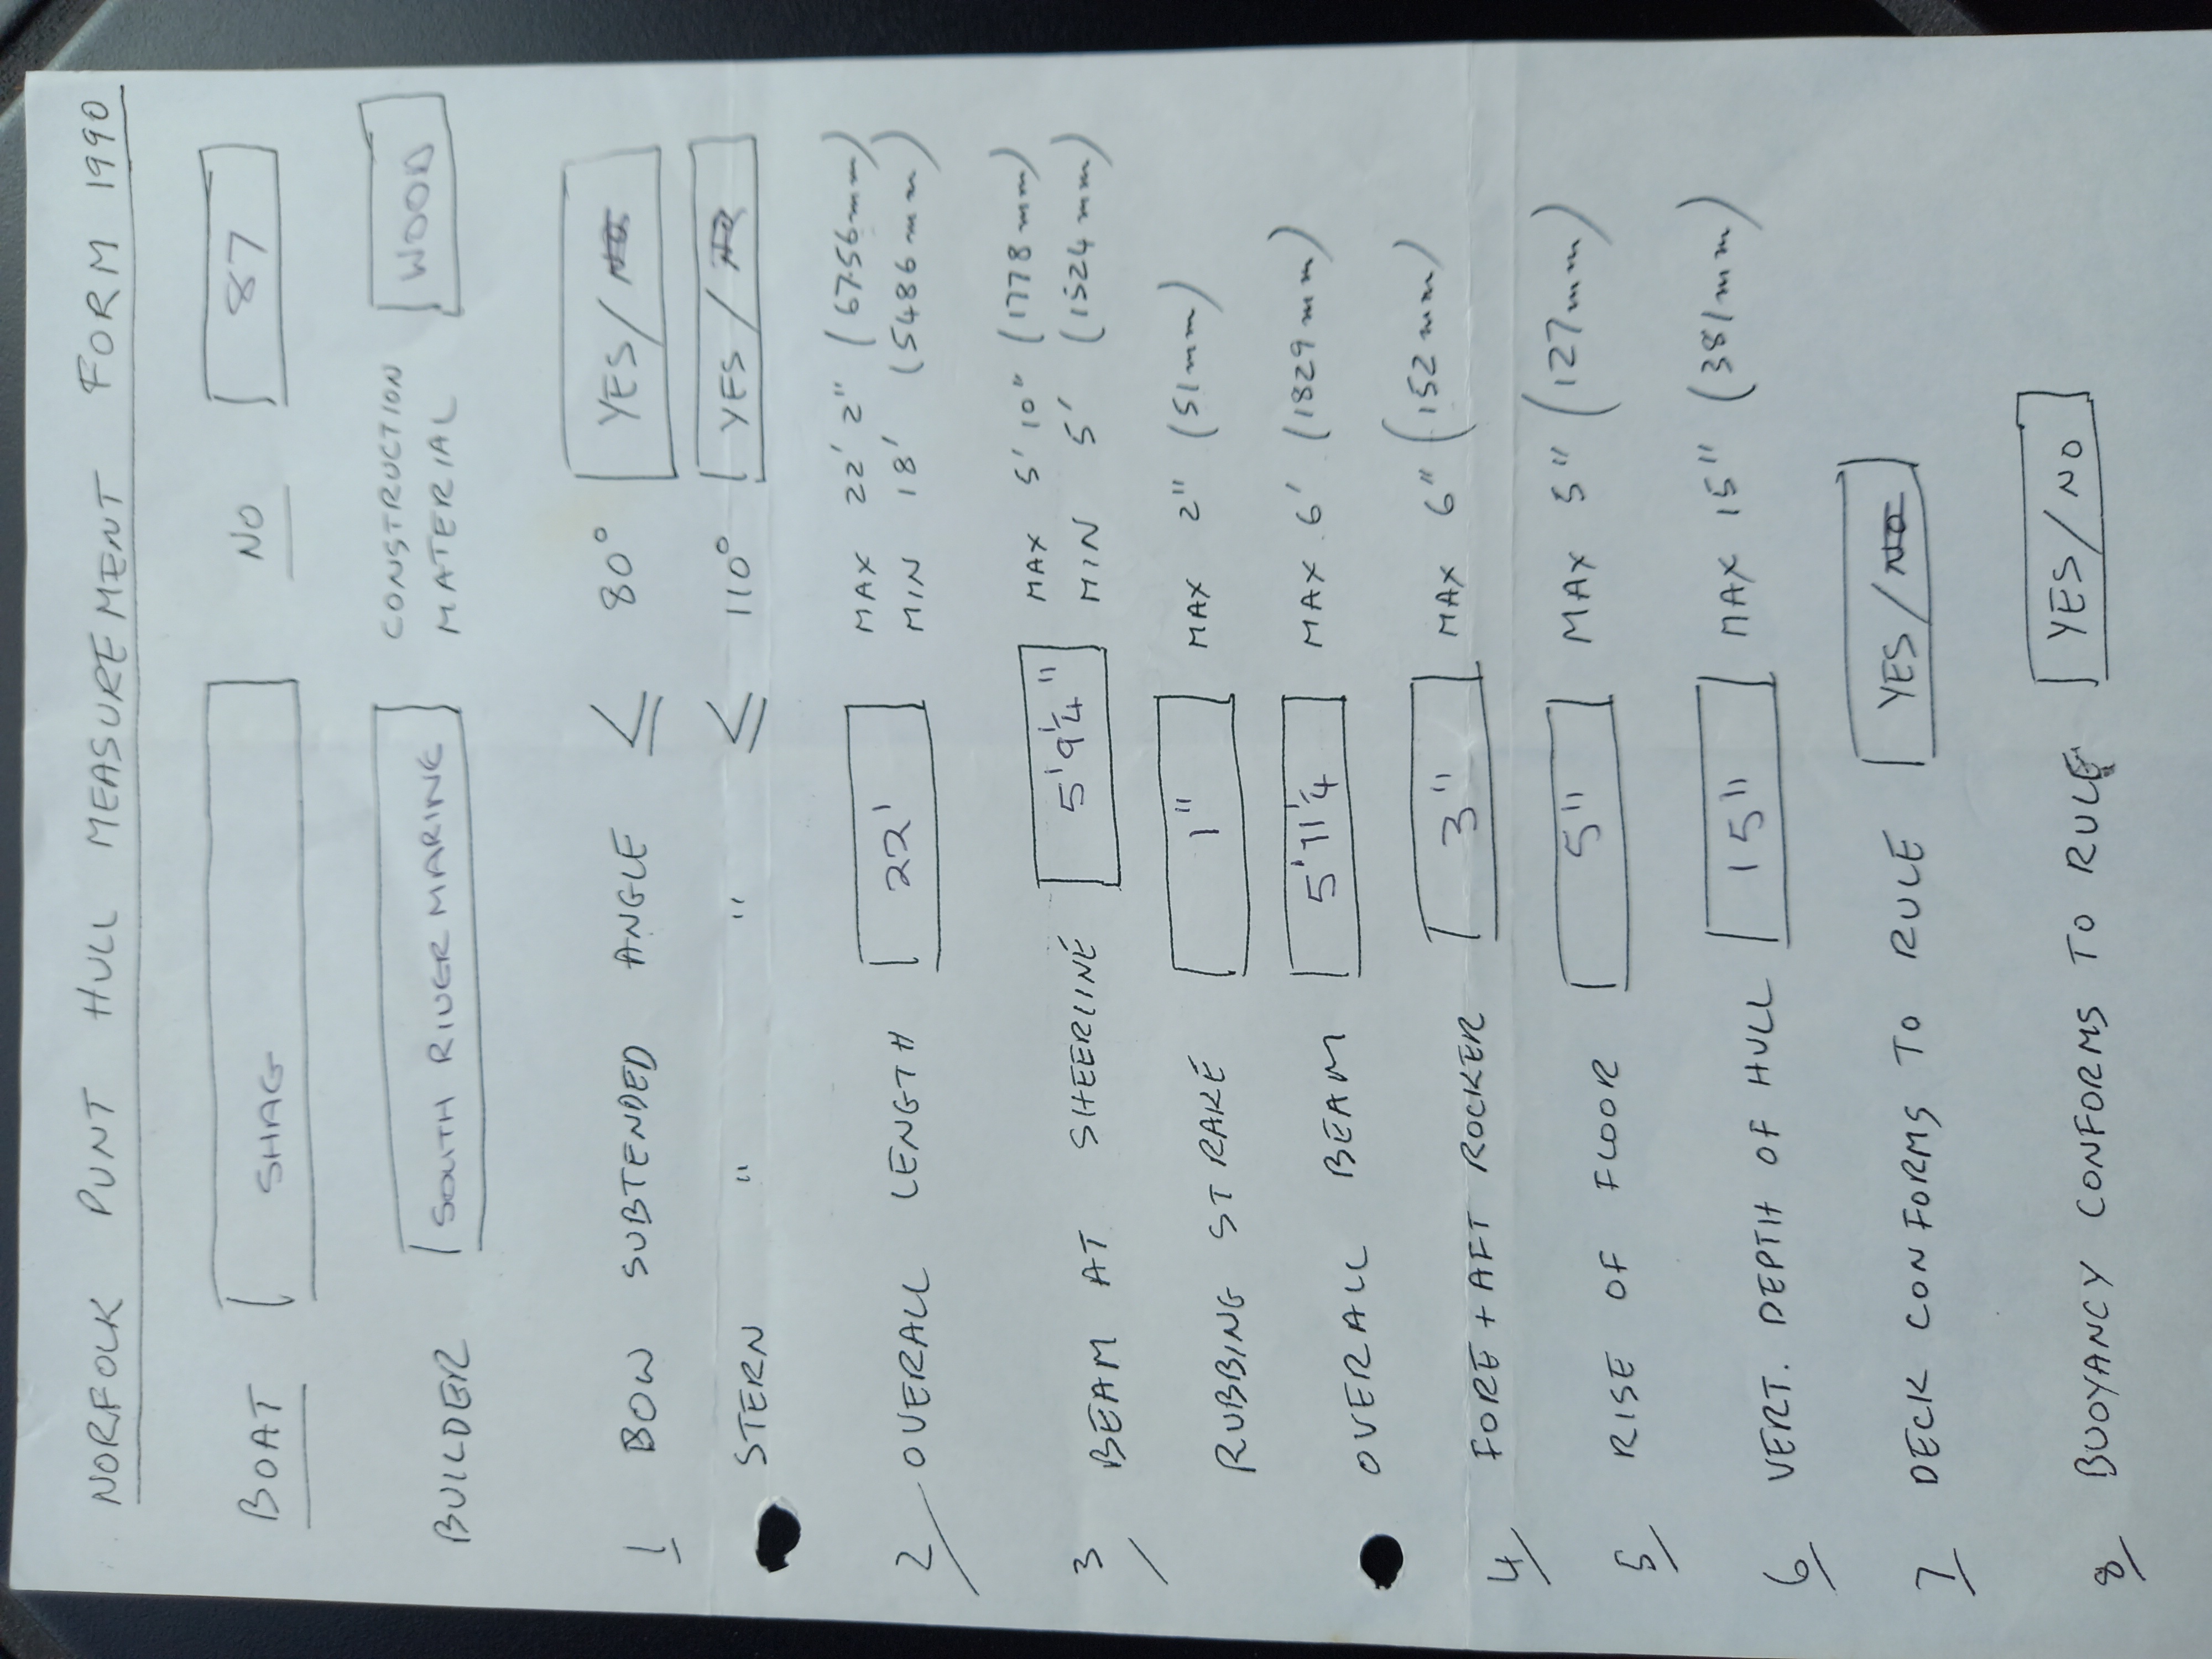 NORFOLK PUNT HULL MEASUREMENT FORM 1990
BOAT [SHAG] NO [87]
BUILDER [SOUTH RIVER MARINE] CONSTRUCTION MATERIAL [WOOD]
1 BOW SUBTENDED ANGLE ≤ 80° [YES/NO]
STERN " " ≤ 110° [YES/NO]
2/ OVERALL LENGTH [22'] MAX 22' 2" (6756mm)
MIN 18' (5486mm)
3/ BEAM AT SHEERLINE [5'9¼"] MAX 5'10" (1778mm)
MIN 5' (1524mm)
RUBBING STRAKE [1"] MAX 2" (51mm)
OVERALL BEAM [5'11¼] MAX 6' (1829mm)
4/ FORE + AFT ROCKER [3"] MAX 6" (152mm)
5/ RISE OF FLOOR [5"] MAX 5" (127mm)
6/ VERT. DEPTH OF HULL [15"] MAX 15" (381mm)
7/ DECK CONFORMS TO RULE [YES/NO]
8/ BUOYANCY CONFORMS TO RULE [YES/NO]